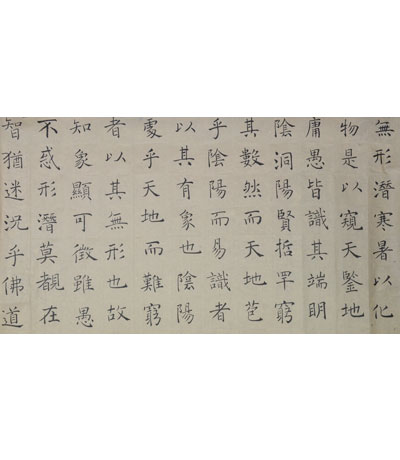 無形潛寒暑以化
物是以窺天鑒地
庸愚皆識其端明
陰洞陽賢哲罕窮
其數然而天地苞
乎陰陽而易識者
以其有象也陰陽
處乎天地而難窮
者以其無形也故
知象顯可徵雖愚
不惑形潛莫覩在
智猶迷況乎佛道